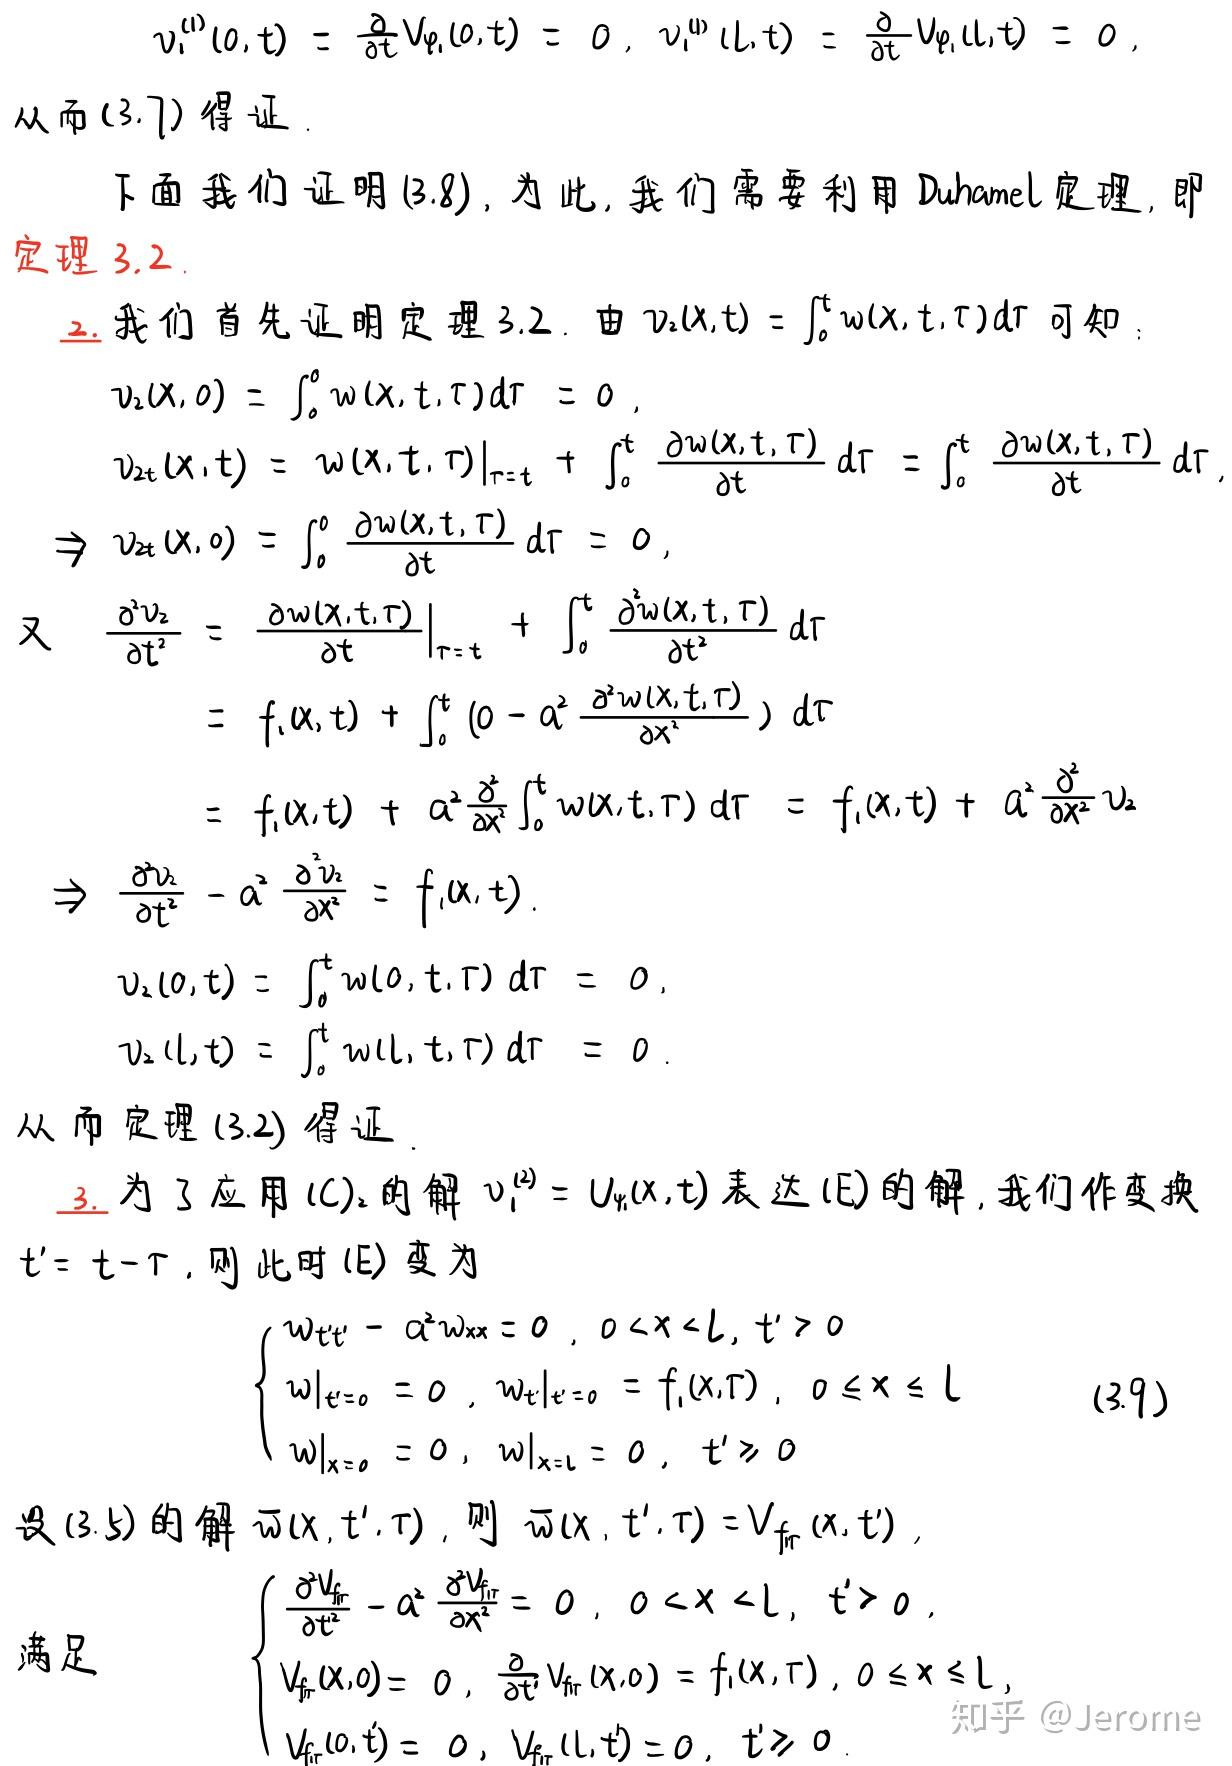 v₁⁽¹⁾(0,t) = ∂/∂t V_φ₁(0,t) = 0, v₁⁽¹⁾(l,t) = ∂/∂t V_φ₁(l,t) = 0,
从而(3.7)得证.
下面我们证明(3.8), 为此, 我们需要利用Duhamel定理, 即
定理3.2.
2. 我们首先证明定理3.2. 由 v₂(x,t) = ∫₀ᵗ w(x,t,τ)dτ 可知:
v₂(x,0) = ∫₀⁰ w(x,t,τ)dτ = 0,
v₂ₜ(x,t) = w(x,t,τ)|_{τ=t} + ∫₀ᵗ ∂w(x,t,τ)/∂t dτ = ∫₀ᵗ ∂w(x,t,τ)/∂t dτ,
⇒ v₂ₜ(x,0) = ∫₀⁰ ∂w(x,t,τ)/∂t dτ = 0,
又 ∂²v₂/∂t² = ∂w(x,t,τ)/∂t|_{τ=t} + ∫₀ᵗ ∂²w(x,t,τ)/∂t² dτ
= f₁(x,t) + ∫₀ᵗ (0 - a² ∂²w(x,t,τ)/∂x²) dτ
= f₁(x,t) + a² ∂²/∂x² ∫₀ᵗ w(x,t,τ) dτ = f₁(x,t) + a² ∂²/∂x² v₂
⇒ ∂²v₂/∂t² - a² ∂²v₂/∂x² = f₁(x,t).
v₂(0,t) = ∫₀ᵗ w(0,t,τ) dτ = 0,
v₂(l,t) = ∫₀ᵗ w(l,t,τ) dτ = 0.
从而定理(3.2)得证.
3. 为了应用(C)₂的解 v₁⁽²⁾ = U_ψ₁(x,t) 表达(E)的解, 我们作变换
t' = t-τ, 则此时(E)变为
w_{t't'} - a²w_{xx} = 0, 0<x<l, t'>0
w|_{t'=0} = 0, w_{t'}|_{t'=0} = f₁(x,τ), 0≤x≤l (3.9)
w|_{x=0} = 0, w|_{x=l} = 0, t'≥0
设(3.5)的解 w̄(x,t',τ), 则 w̄(x,t',τ) = V_{f₁τ}(x,t'),
∂²V_{f₁τ}/∂t'² - a² ∂²V_{f₁τ}/∂x² = 0, 0<x<l, t'>0,
满足 V_{f₁τ}(x,0) = 0, ∂/∂t' V_{f₁τ}(x,0) = f₁(x,τ), 0≤x≤l,
V_{f₁τ}(0,t') = 0, V_{f₁τ}(l,t') = 0, t'≥0.
知乎 @Jerome